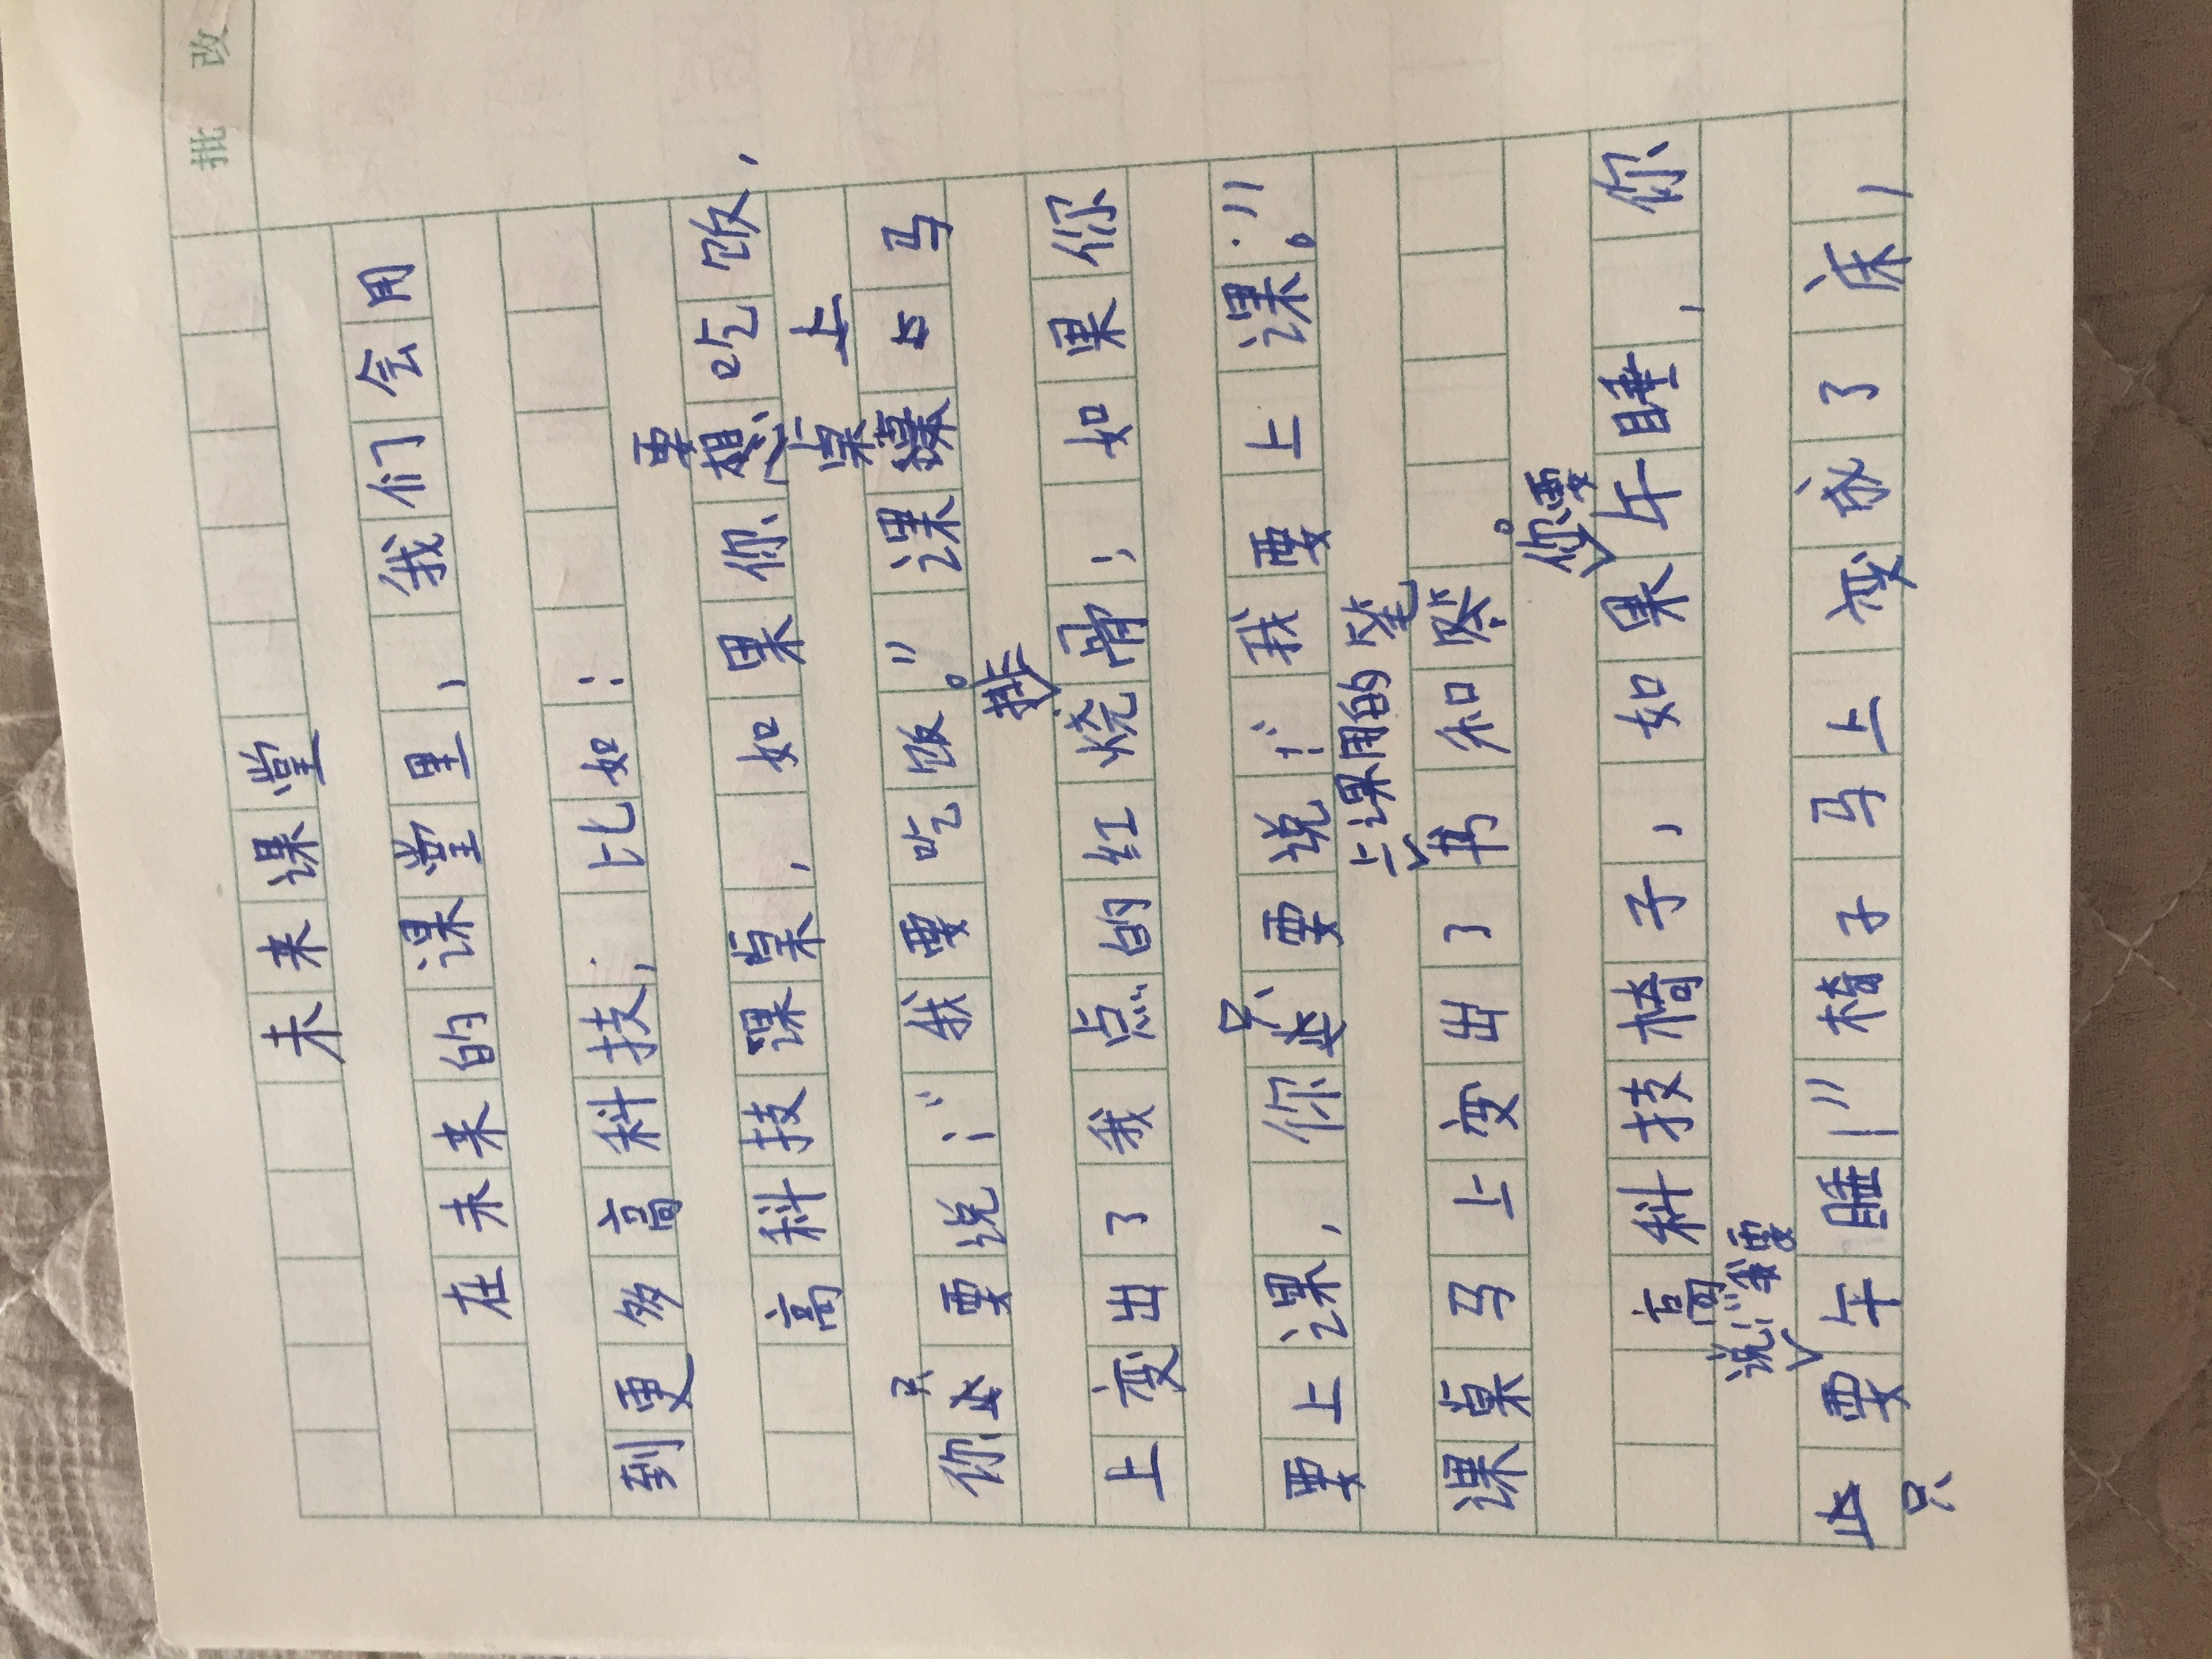 批 改
未来课堂
在未来的课堂里,我们会用
到更多高科技,比如:
高科技课桌,如果你要吃饭,
你只要说:“我要吃饭。”课桌上马
上变出了我点的红烧排骨;如果你
要上课,你只要说:“我要上课。”
课桌马上变出了上课用的书和笔。
高科技椅子,如果你要午睡,你
只要说:“我要午睡!”椅子马上变成了床,